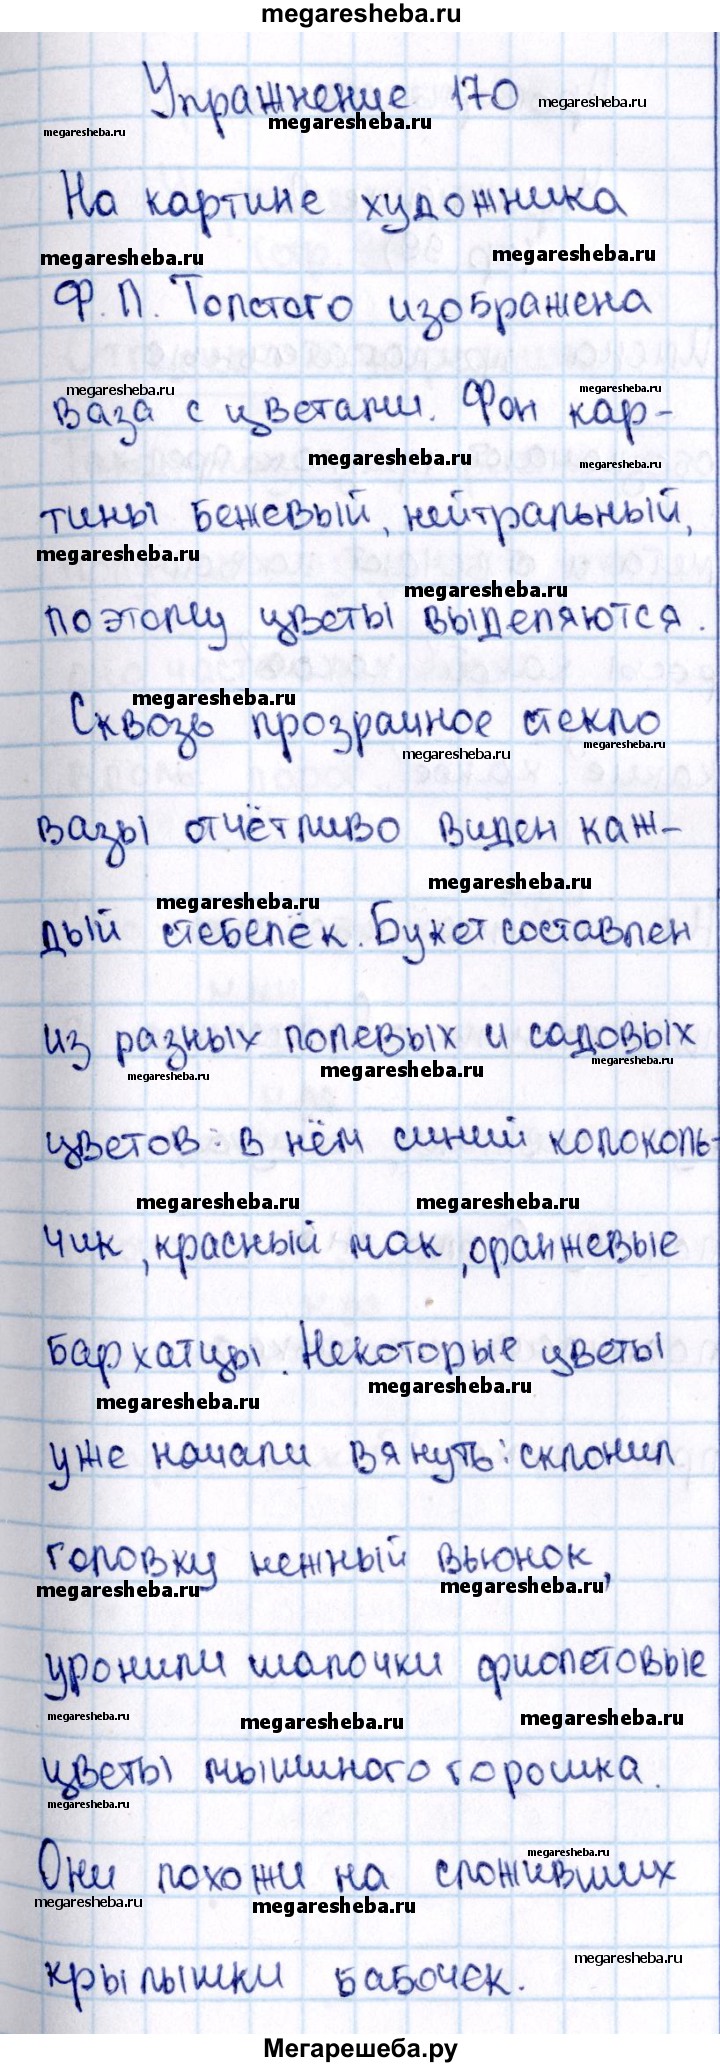 megaresheba.ru
Упражнение 170
megaresheba.ru
megaresheba.ru
megaresheba.ru
На картине художника
megaresheba.ru
megaresheba.ru
Ф. П. Толстого изображена
megaresheba.ru
megaresheba.ru
ваза с цветами. Фон кар-
megaresheba.ru
megaresheba.ru
тины бежевый, нейтральный,
megaresheba.ru
megaresheba.ru
поэтому цветы выделяются.
megaresheba.ru
Сквозь прозрачное стекло
megaresheba.ru
megaresheba.ru
вазы отчётливо виден каж-
megaresheba.ru
megaresheba.ru
дый стебелёк. Букет составлен
из разных полевых и садовых
megaresheba.ru
megaresheba.ru
megaresheba.ru
цветов: в нём синий колоколь-
megaresheba.ru
megaresheba.ru
чик, красный мак, оранжевые
бархатцы. Некоторые цветы
megaresheba.ru
megaresheba.ru
уже начали вянуть: склонил
головку нежный вьюнок,
megaresheba.ru
megaresheba.ru
уронили шапочки фиолетовые
megaresheba.ru
megaresheba.ru
megaresheba.ru
цветы мышиного горошка.
megaresheba.ru
Они похожи на сложивших
megaresheba.ru
megaresheba.ru
megaresheba.ru
крылышки бабочек.
megaresheba.ru
Мегарешеба.ру